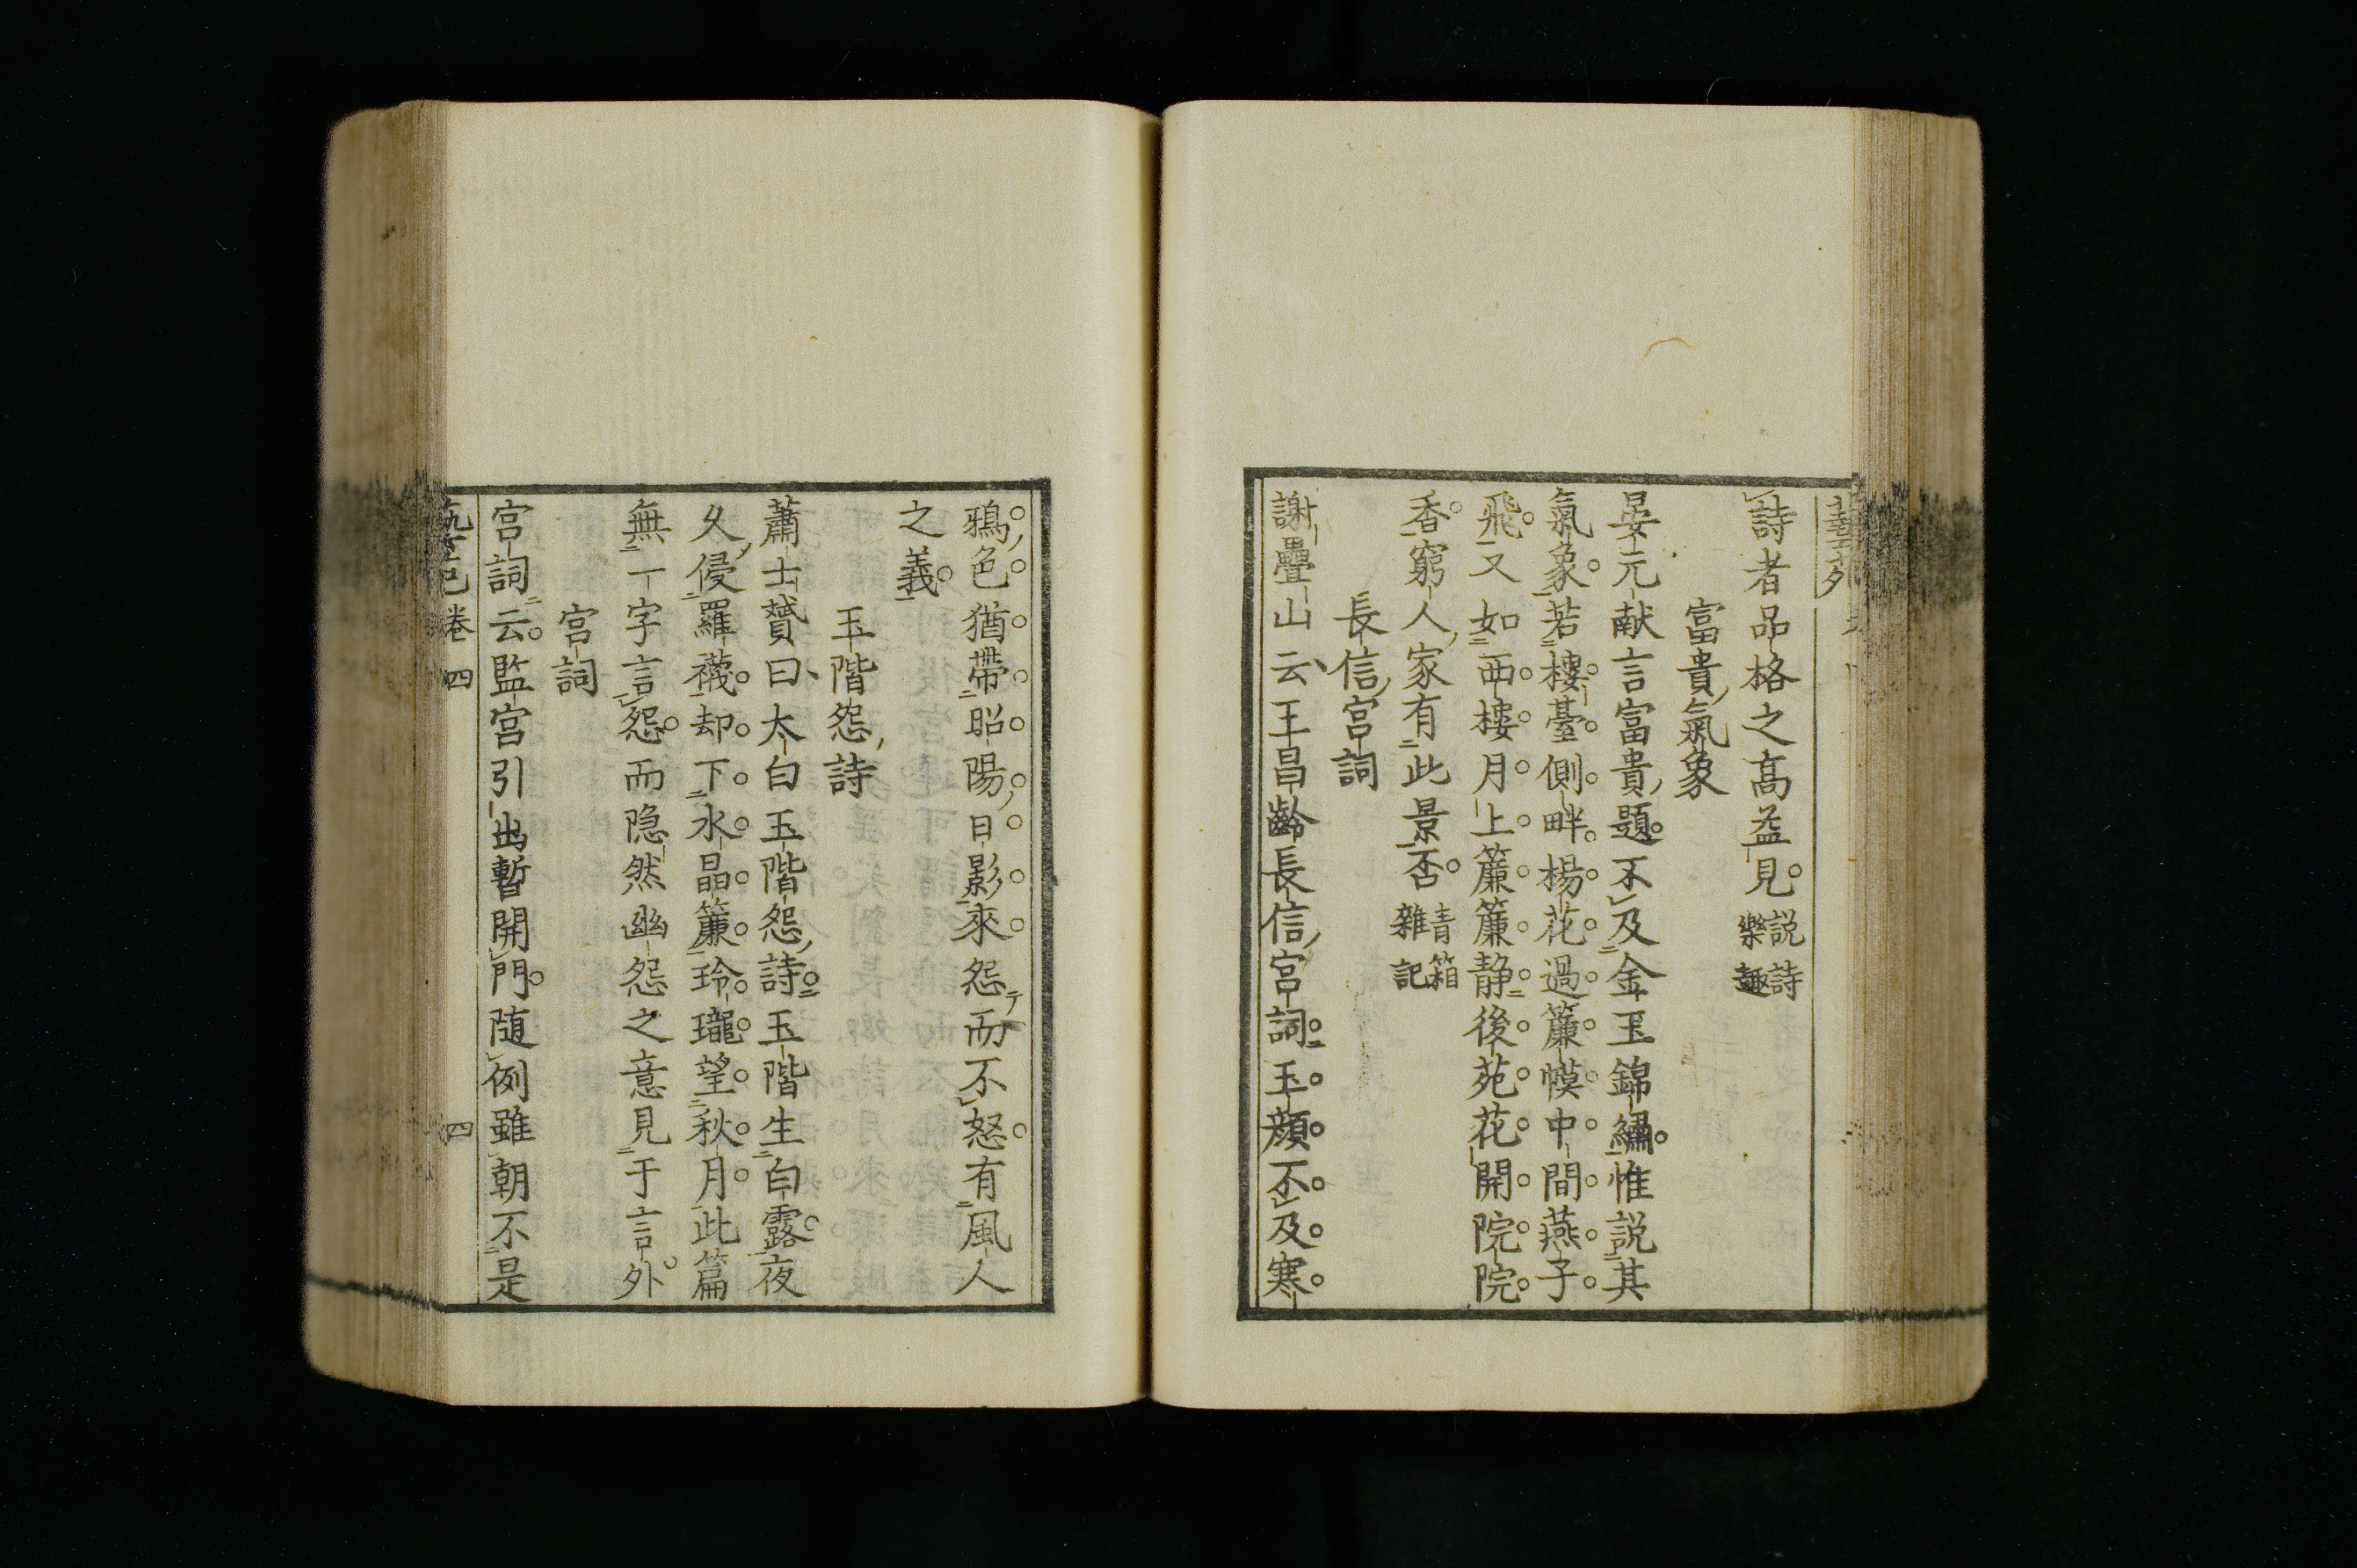 詩者品格之高益見説詩樂趣
富貴氣象
晏元献言富貴題不及金玉錦繡惟説其
氣象若樓臺側畔楊花過簾幙中間燕子
飛又如西樓月上簾簾静後苑花開院院
香窮人家有此景否青箱雜記
長信宮詞
謝疊山云王昌齡長信宮詞玉顔不及寒
鴉色猶帶昭陽日影來怨而不怒有風人
之義
玉階怨詩
蕭士贇曰太白玉階怨詩玉階生白露夜
久侵羅襪却下水晶簾玲瓏望秋月此篇
無一字言怨而隐然幽怨之意見于言外
宮詞
宮詞云監宮引出暫開門随例雖朝不是
卷四 四